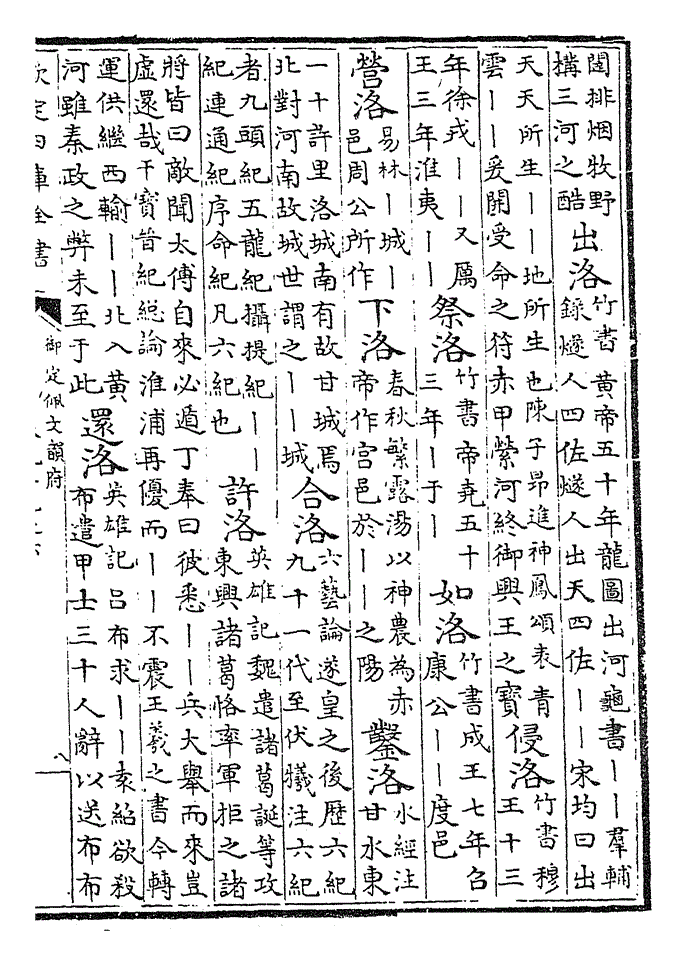 闥排烟牧野
構三河之酷
出洛
竹書黄帝五十年龍圖出河龜書丨丨羣輔
錄燧人四佐燧人出天四佐丨丨宋均曰出
天天所生丨丨地所生也陳子昻進神鳳頌表青
雲丨丨爰開受命之符赤甲縈河終御興王之寶
侵洛
竹書穆
王十三
年徐戎丨丨又厲
王三年淮夷丨丨
祭洛
竹書帝堯五十
三年丨于丨
如洛
竹書成王七年召
康公丨丨度邑
營洛
易林丨城丨
邑周公所作
下洛
春秋繁露湯以神農為赤
帝作宫邑於丨丨之陽
鑿洛
水經注
甘水東
一十許里洛城南有故甘城焉
北對河南故城世謂之丨丨城
合洛
六藝論遂皇之後歴六紀
九十一代至伏犧注六紀
者九頭紀五龍紀攝提紀丨丨
紀連通紀序命紀凡六紀也
許洛
英雄記魏遣諸葛誕等攻
東興諸葛恪率軍拒之諸
將皆曰敵聞太傅自來必遁丁奉曰彼悉丨丨兵大舉而來豈
虚還哉干寶晉紀總論淮浦再優而丨丨不震王羲之書今轉
運供繼西輸丨丨北入黄
河雖秦政之弊未至于此
還洛
英雄記吕布求丨丨袁紹欲殺
布遣甲士三十人辭以送布布
欽定四庫全書
御定佩文韻府
八